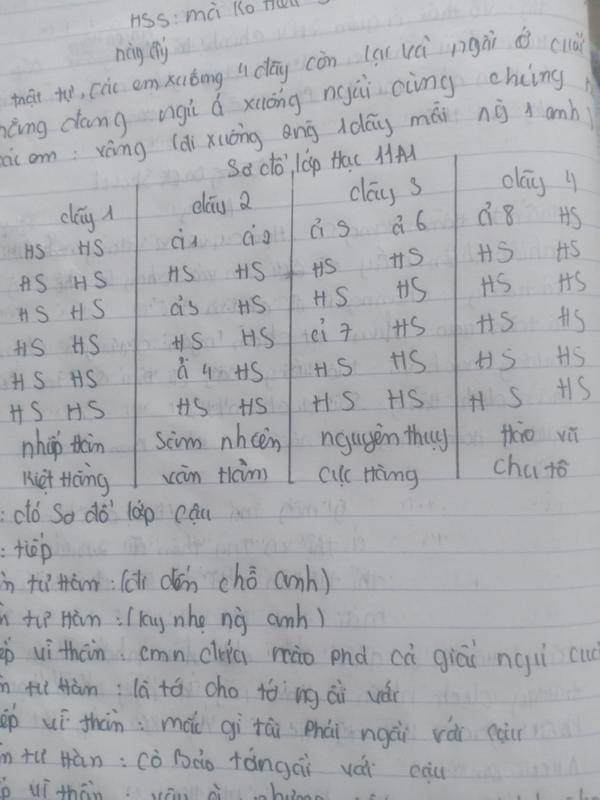 HSS: mãi ko
này đấy
trật tự, các em xuống 4 dãy còn lại và ngồi ở cuối
đang ngủ á xuống ngồi cùng chúng
các em: vâng (đi xuống ang 1 dãy mãi ng 1 anh)
Sơ đồ lớp Học 11A1
dãy 1 dãy 2 dãy 3 dãy 4
HS HS ả1 ả2 ả 5 ả 6 ả 8 HS
HS HS HS HS HS HS HS HS
HS HS ả3 HS HS HS HS HS
HS HS HS HS ả 7 HS HS HS
HS HS ả 4 HS HS HS HS HS
HS HS HS HS HS HS HS HS
nhếp thần sâm nhcên nguyên thuy Hào vũ
Kiệt Hàng vân Hàm cực Hàng chu tô
: đó sơ đồ lớp cậu
: tiếp
tư Hàn: (đi đến chỗ anh)
tư Hàn: (kuy nhẹ ng anh)
vĩ thần: cmn đứa mào phá cả giấc ngủ
tư Hàn: là tớ cho tớ ngồi với
vĩ thần: mắc gì tôi phải ngồi với cậu
tư Hàn: cô bảo tớ ngồi với cậu
vĩ thần: